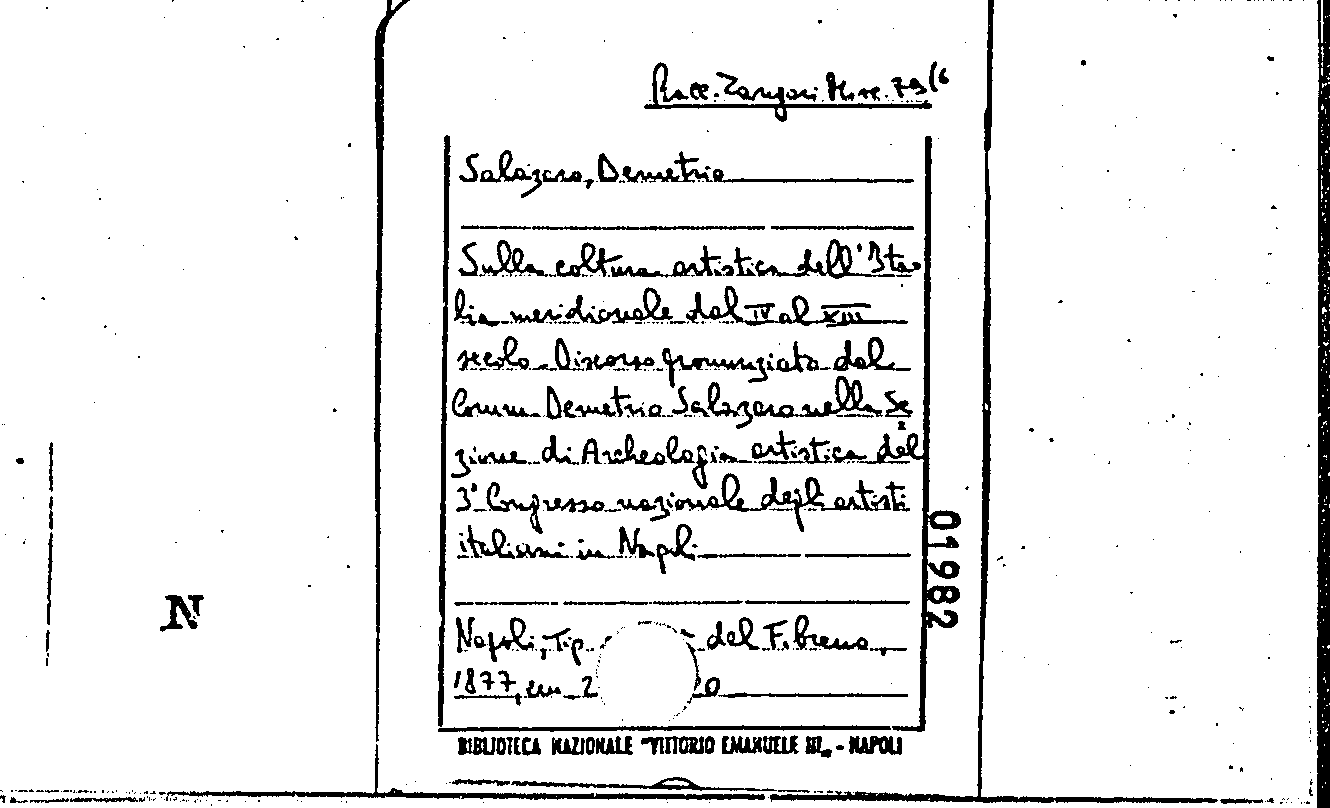 Racc. Zangari Misc. 79/6
Salazaro, Demetrio
Sulla coltura artistica dell'Ita-
lia meridionale dal IV al XIII
secolo. Discorso pronunziato dal
Comm. Demetrio Salazaro nella Se
zione di Archeologia artistica del
3° Congresso nazionale degli artisti
italiani in Napoli
01982
N
Napoli, Tip. del Fibreno,
1877, cm 2 0
BIBLIOTECA NAZIONALE "VITTORIO EMANUELE III„ - NAPOLI